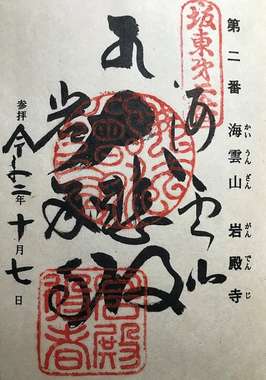 坂東第二番
第二番 海雲山 岩殿寺
かいうんざん がんでんじ
海雲山
大悲殿
岩殿寺
参拝 令和二年 十月 七日